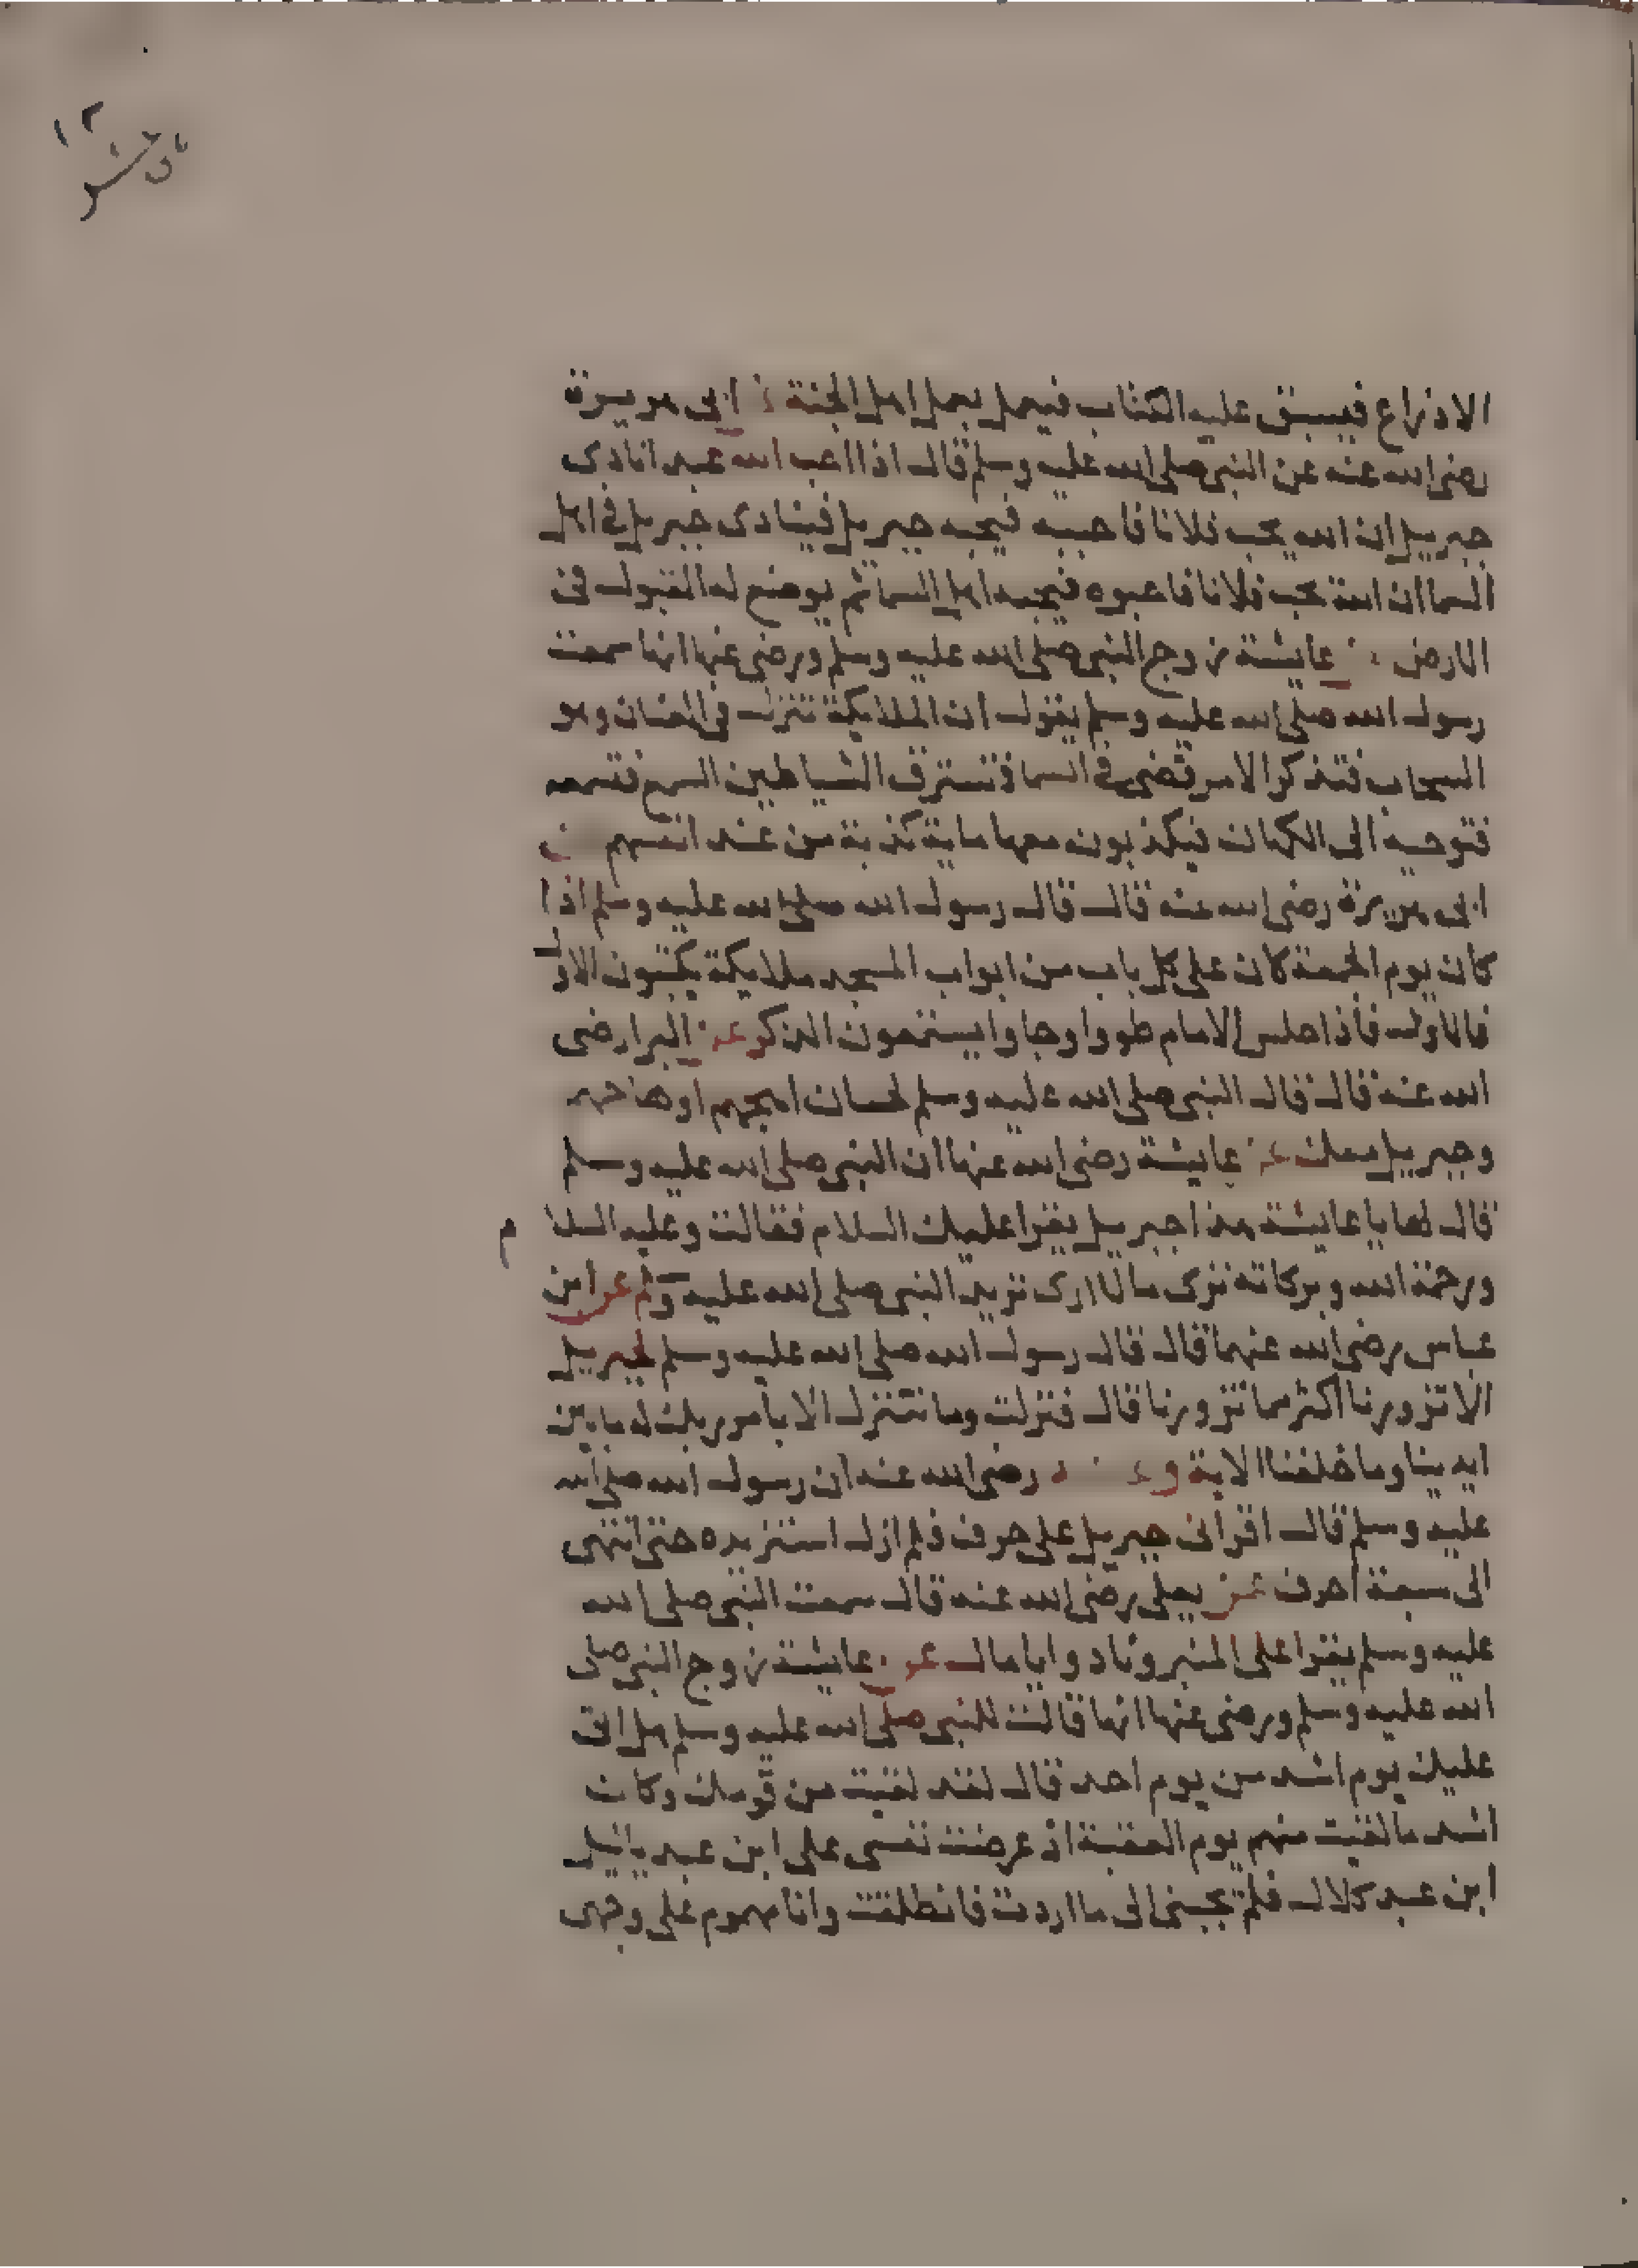 ١٢
الاذراع فيسبق عليه الكتاب فيعمل بعمل اهل الجنة ابى هريرة
رضى الله عنه عن النبي صلى الله عليه وسلم قال اذا احب الله عبدا نادى
جبريل ان الله يحب فلانا فاحببه فيحبه جبريل فينادى جبريل فى اهل
السما ان الله يحب فلانا فاحبوه فيحبه اهل السما ثم يوضع له القبول فى
الارض عايشة زوج النبي صلى الله عليه وسلم ورضى عنها انها سمعت
رسول الله صلى الله عليه وسلم يقول ان الملايكة تنزل فى العنان وهو
السحاب فتذكر الامر قضى فى السما فتسترق الشياطين السمع فتسمعه
فتوحيه الى الكهان فيكذبون معها ماية كذبة من عند انفسهم
ابى هريرة رضى الله عنه قال قال رسول الله صلى الله عليه وسلم اذا
كان يوم الجمعة كان على كل باب من ابواب المسجد ملايكة يكتبون الاول
فالاول فاذا جلس الامام طووا وجاوا يستمعون الذكر عن البرا رضى
الله عنه قال قال النبي صلى الله عليه وسلم لحسان اهجهم او هاجهم
وجبريل معك عن عايشة رضى الله عنها ان النبي صلى الله عليه وسلم
قال لها يا عايشة هذا جبريل يقرا عليك السلام فقالت وعليه السلام
ورحمة الله وبركاته ترى ما لا ارى تريد النبي صلى الله عليه وسلم عن ابن
عباس رضى الله عنهما قال قال رسول الله صلى الله عليه وسلم لجبريل
الا تزورنا اكثر مما تزورنا قال فنزلت وما نتنزل الا بامر ربك له ما بين
ايدينا وما خلفنا الاية وعنه رضى الله عنه ان رسول الله صلى الله
عليه وسلم قال اقرانى جبريل على حرف فلم ازل استزيده حتى انتهى
الى سبعة احرف عن يعلى رضى الله عنه قال سمعت النبي صلى الله
عليه وسلم يقرا على المنبر ونادوا يا مال عن عايشة زوج النبي صلى
الله عليه وسلم ورضى عنها انها قالت للنبي صلى الله عليه وسلم هل اتى
عليك يوم اشد من يوم احد قال لقد لقيت من قومك وكان
اشد ما لقيت منهم يوم العقبة اذ عرضت نفسى على ابن عبد ياليل
ابن عبد كلال فلم يجبنى الى ما اردت فانطلقت وانا مهموم على وجهى